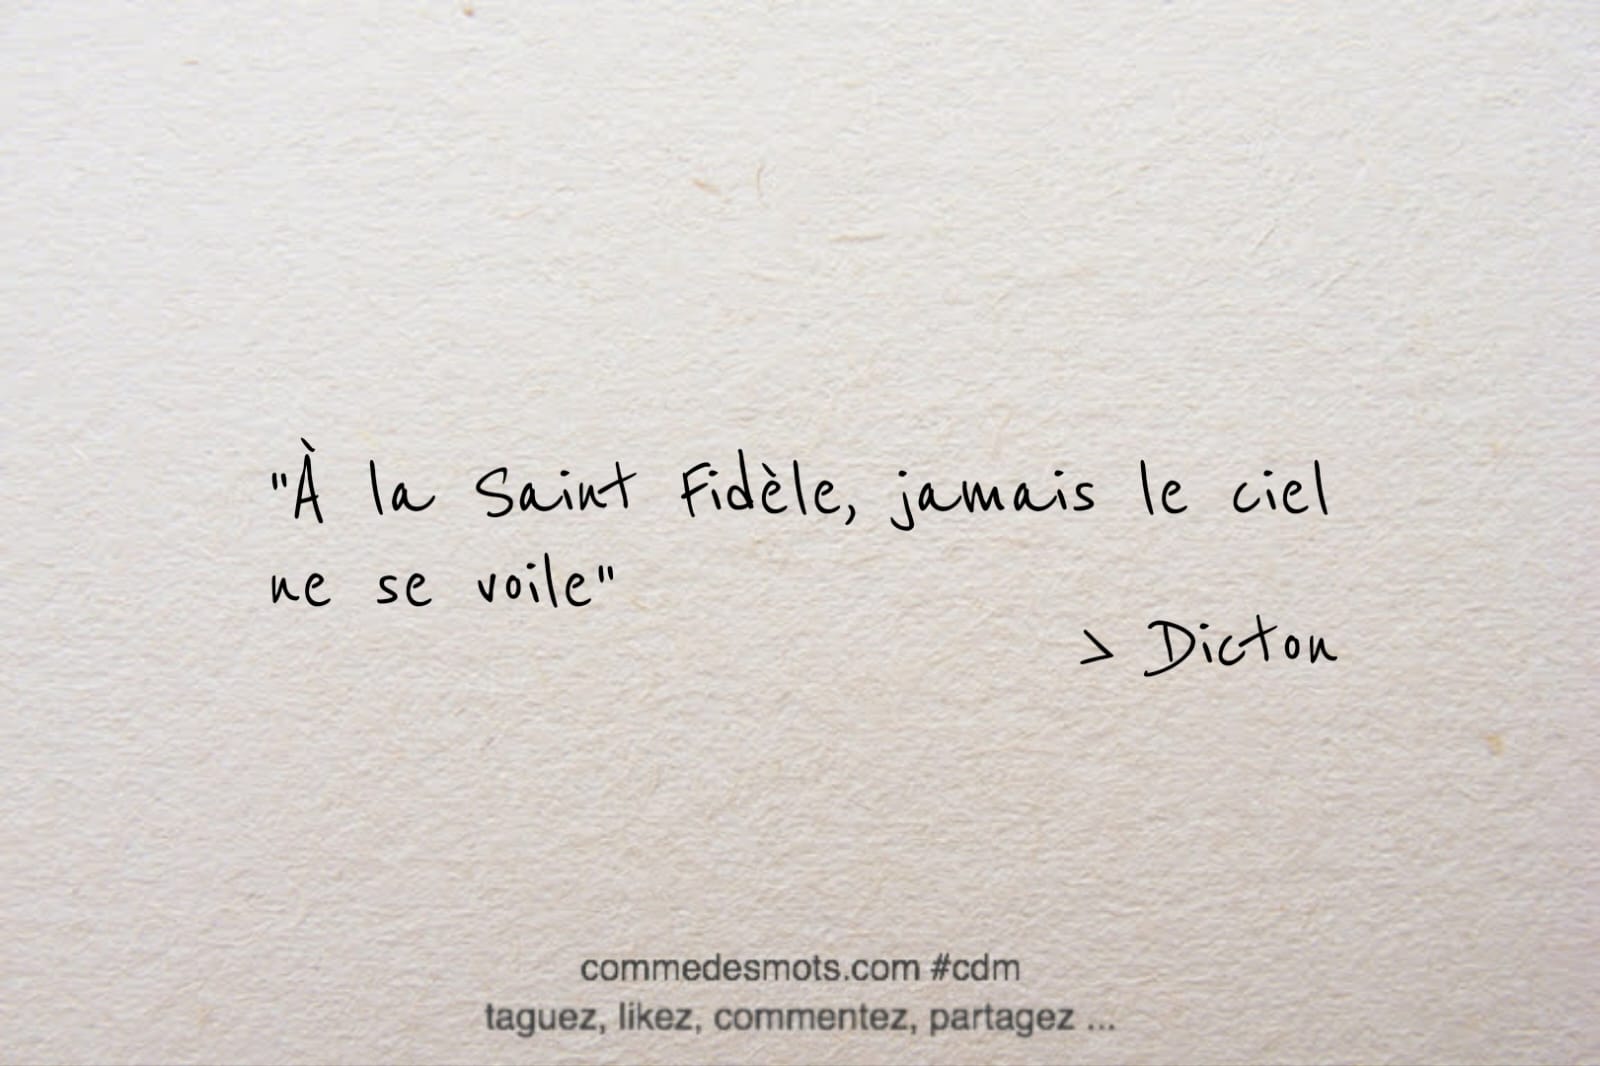 "À la Saint Fidèle, jamais le ciel
ne se voile"
> Dicton
commedesmots.com #cdm
taguez, likez, commentez, partagez ...